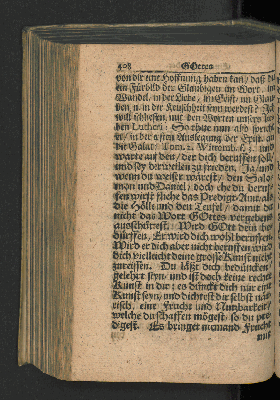 508 GOttes
von dir eine Hoffnung haben kan/ daß du
ein Fürbild der Glaubigen im Wort, im
Wandel, in der Liebe, im Geist, im Glau-
ben, in der Keuschheit seyn werdest? Ja
will schliessen, mit den Worten unsers
ben Lutheri: So thue nun also, sprich
er/ in der ersten Auslegung der Epist. an
die Galat. Tom. 2. Wittemb. f. 2. und
warte auf den/ der dich beruffen soll/
und sey derweilen zu frieden. Ja/ und
wenn du weiser wärest/ den Salo-
mon und Daniel/ doch ehe du beruf-
fen wirst fliehe das Predigt-Amt/ als
die Höll und den Teufel/ damit du
nicht das Wort GOttes vergeben
ausschürest. Wird GOtt dein be-
dürffen, Er wird dich wohl beruffen.
Wird er dich aber nicht beruffen/ wird
dich vielleicht deine grosse Kunst nicht
zureissen. Du läßt dich bedüncken/
gelehrt seyn/ und ist doch keine rechte
Kunst in dir; es dünckt dich nur eine
Kunst seyn/ und dichtest dir selbst när-
risch, eine Frucht und Nutzbarkeit/
welche du schaffen mögest, so du pre-
digest. Es bringet niemand Frucht
mit